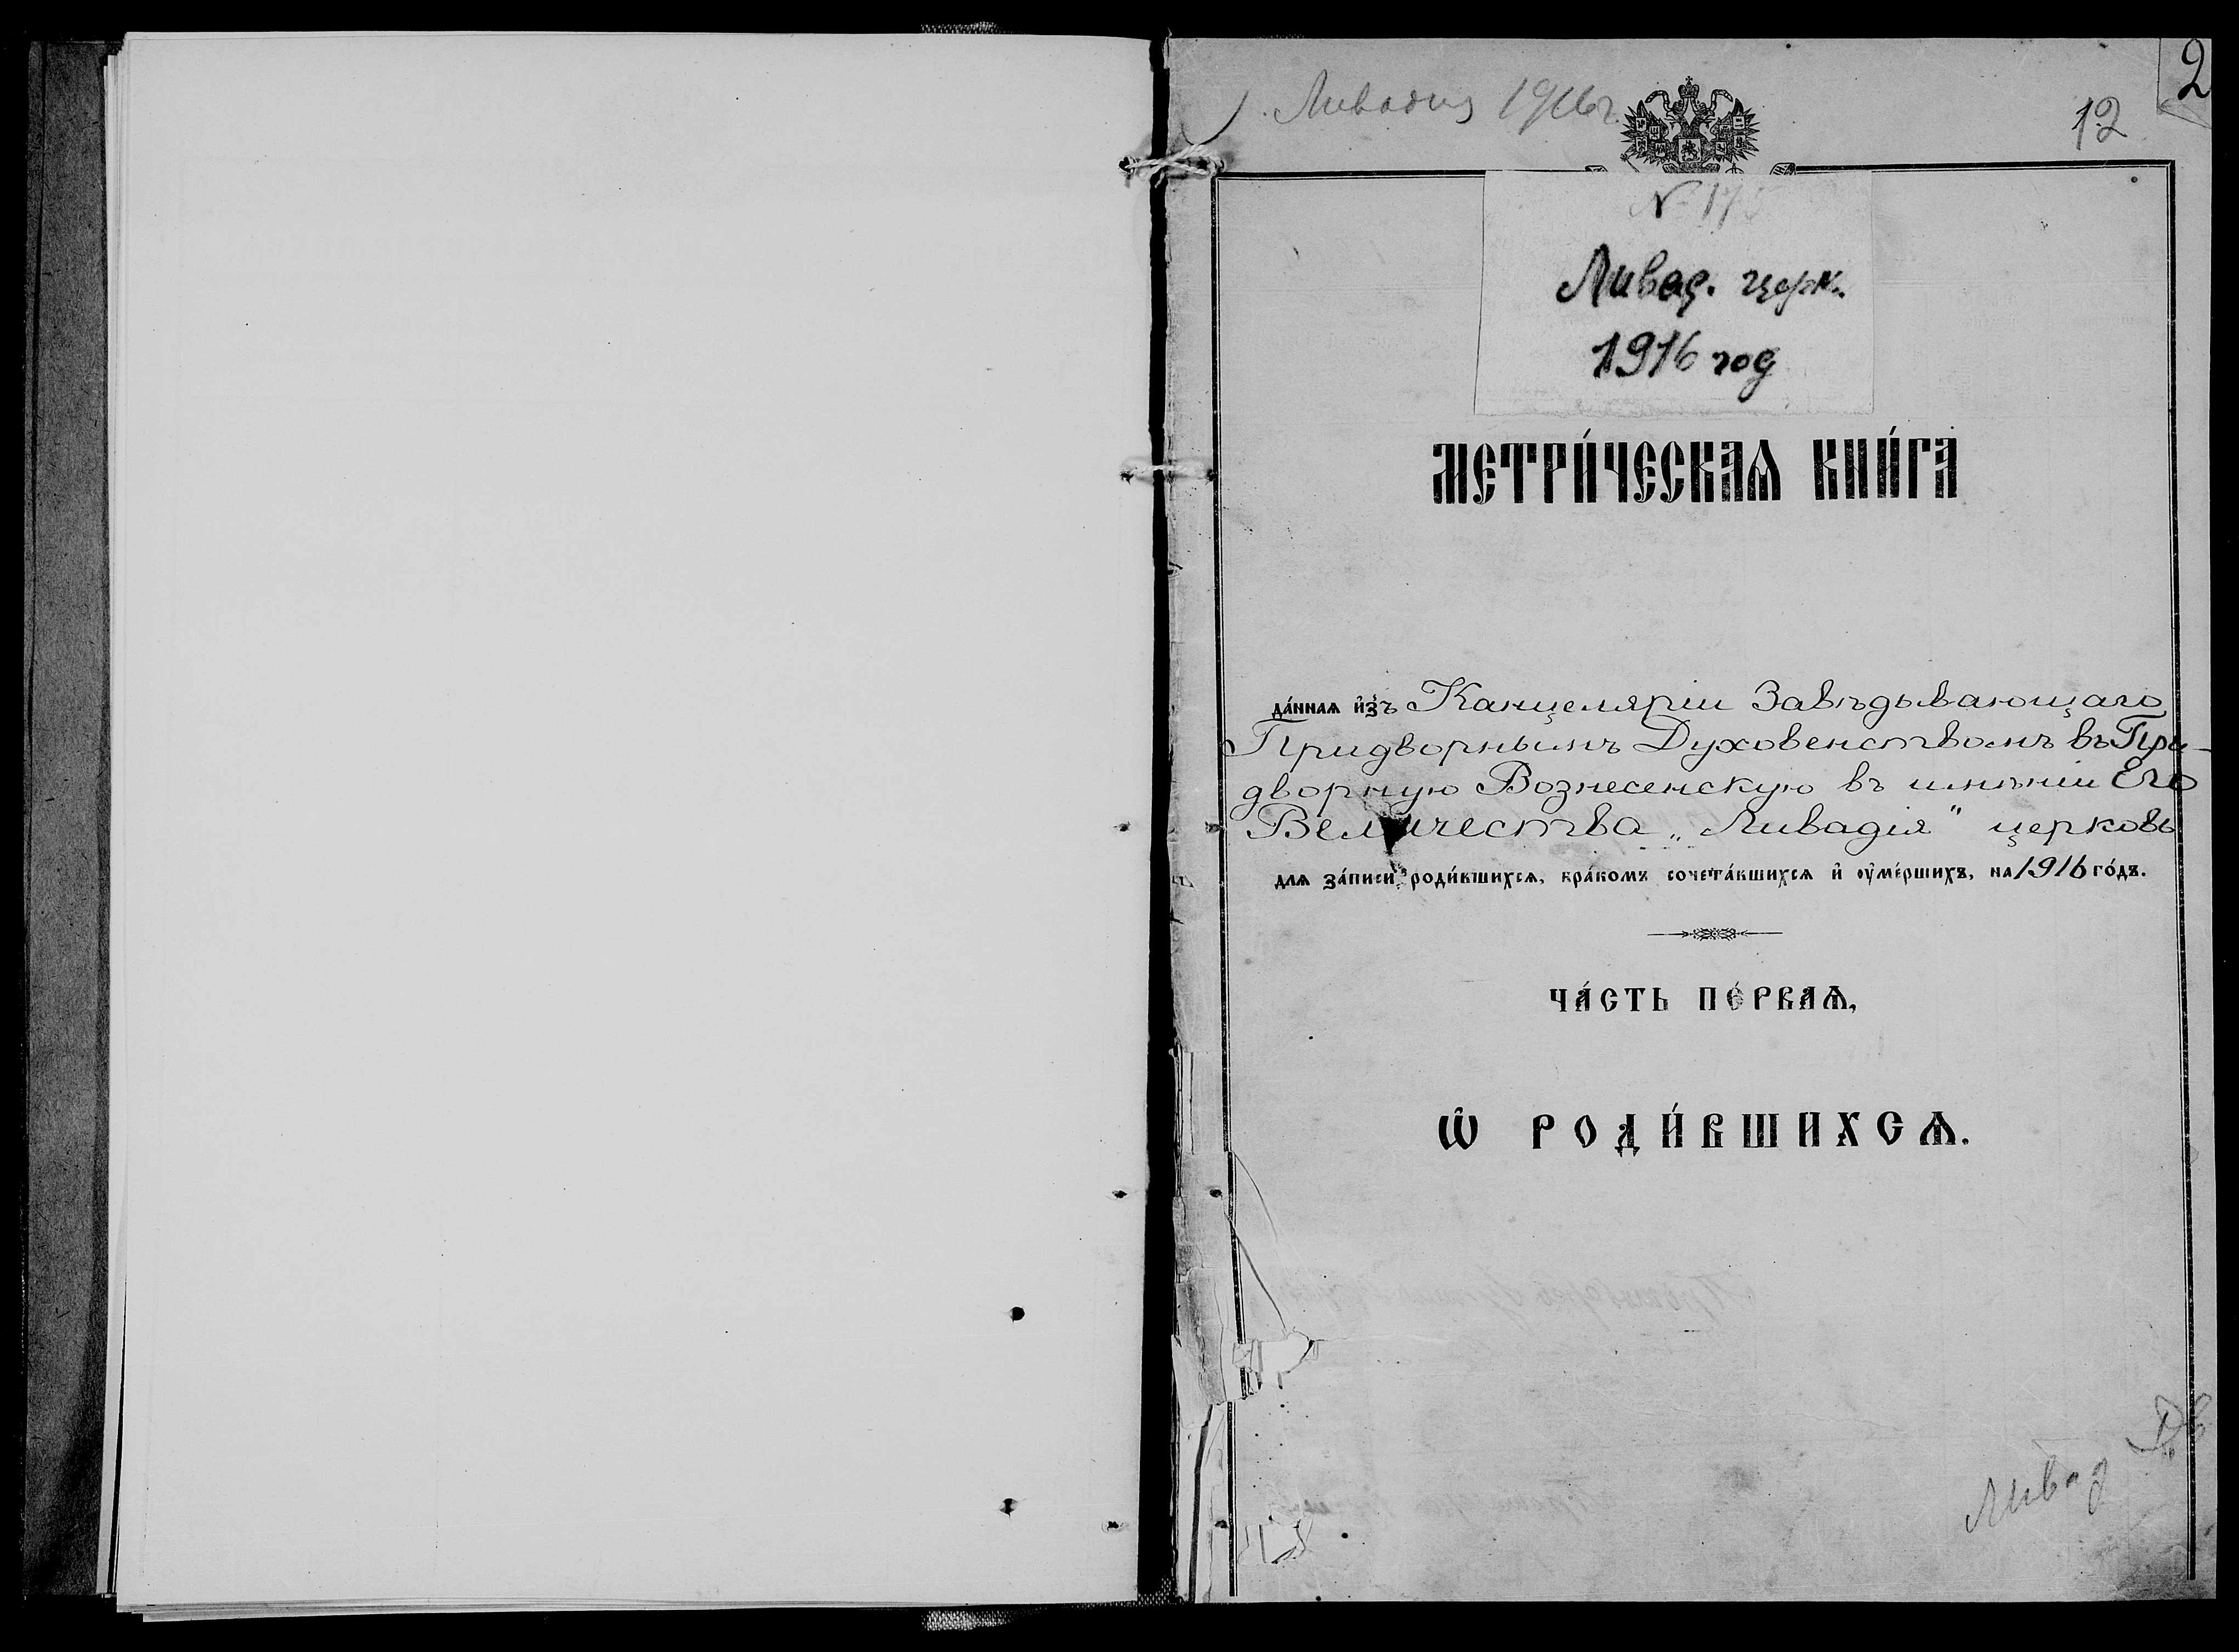 Ливадия 1916 г.
12
2
Ливад. церк.
1916 год
МЕТРИ́ЧЕСКАѦ КНИ́ГА
да́ннаѧ и҆зъ Канцеляріи Завѣдывающаго
Придворнымъ Духовенствомъ въ При-
дворную Вознесенскую въ имѣніи Его
Величества „Ливадія" церковь
для за́писи роди́вшихсѧ, бра́комъ сочета́вшихсѧ и҆ ᲂу҆ме́ршихъ, на 1916 го́дъ.
ЧА́СТЬ ПЕ́РВАѦ,
Ѡ҆ РОДИ́ВШИХСѦ.
Ливад